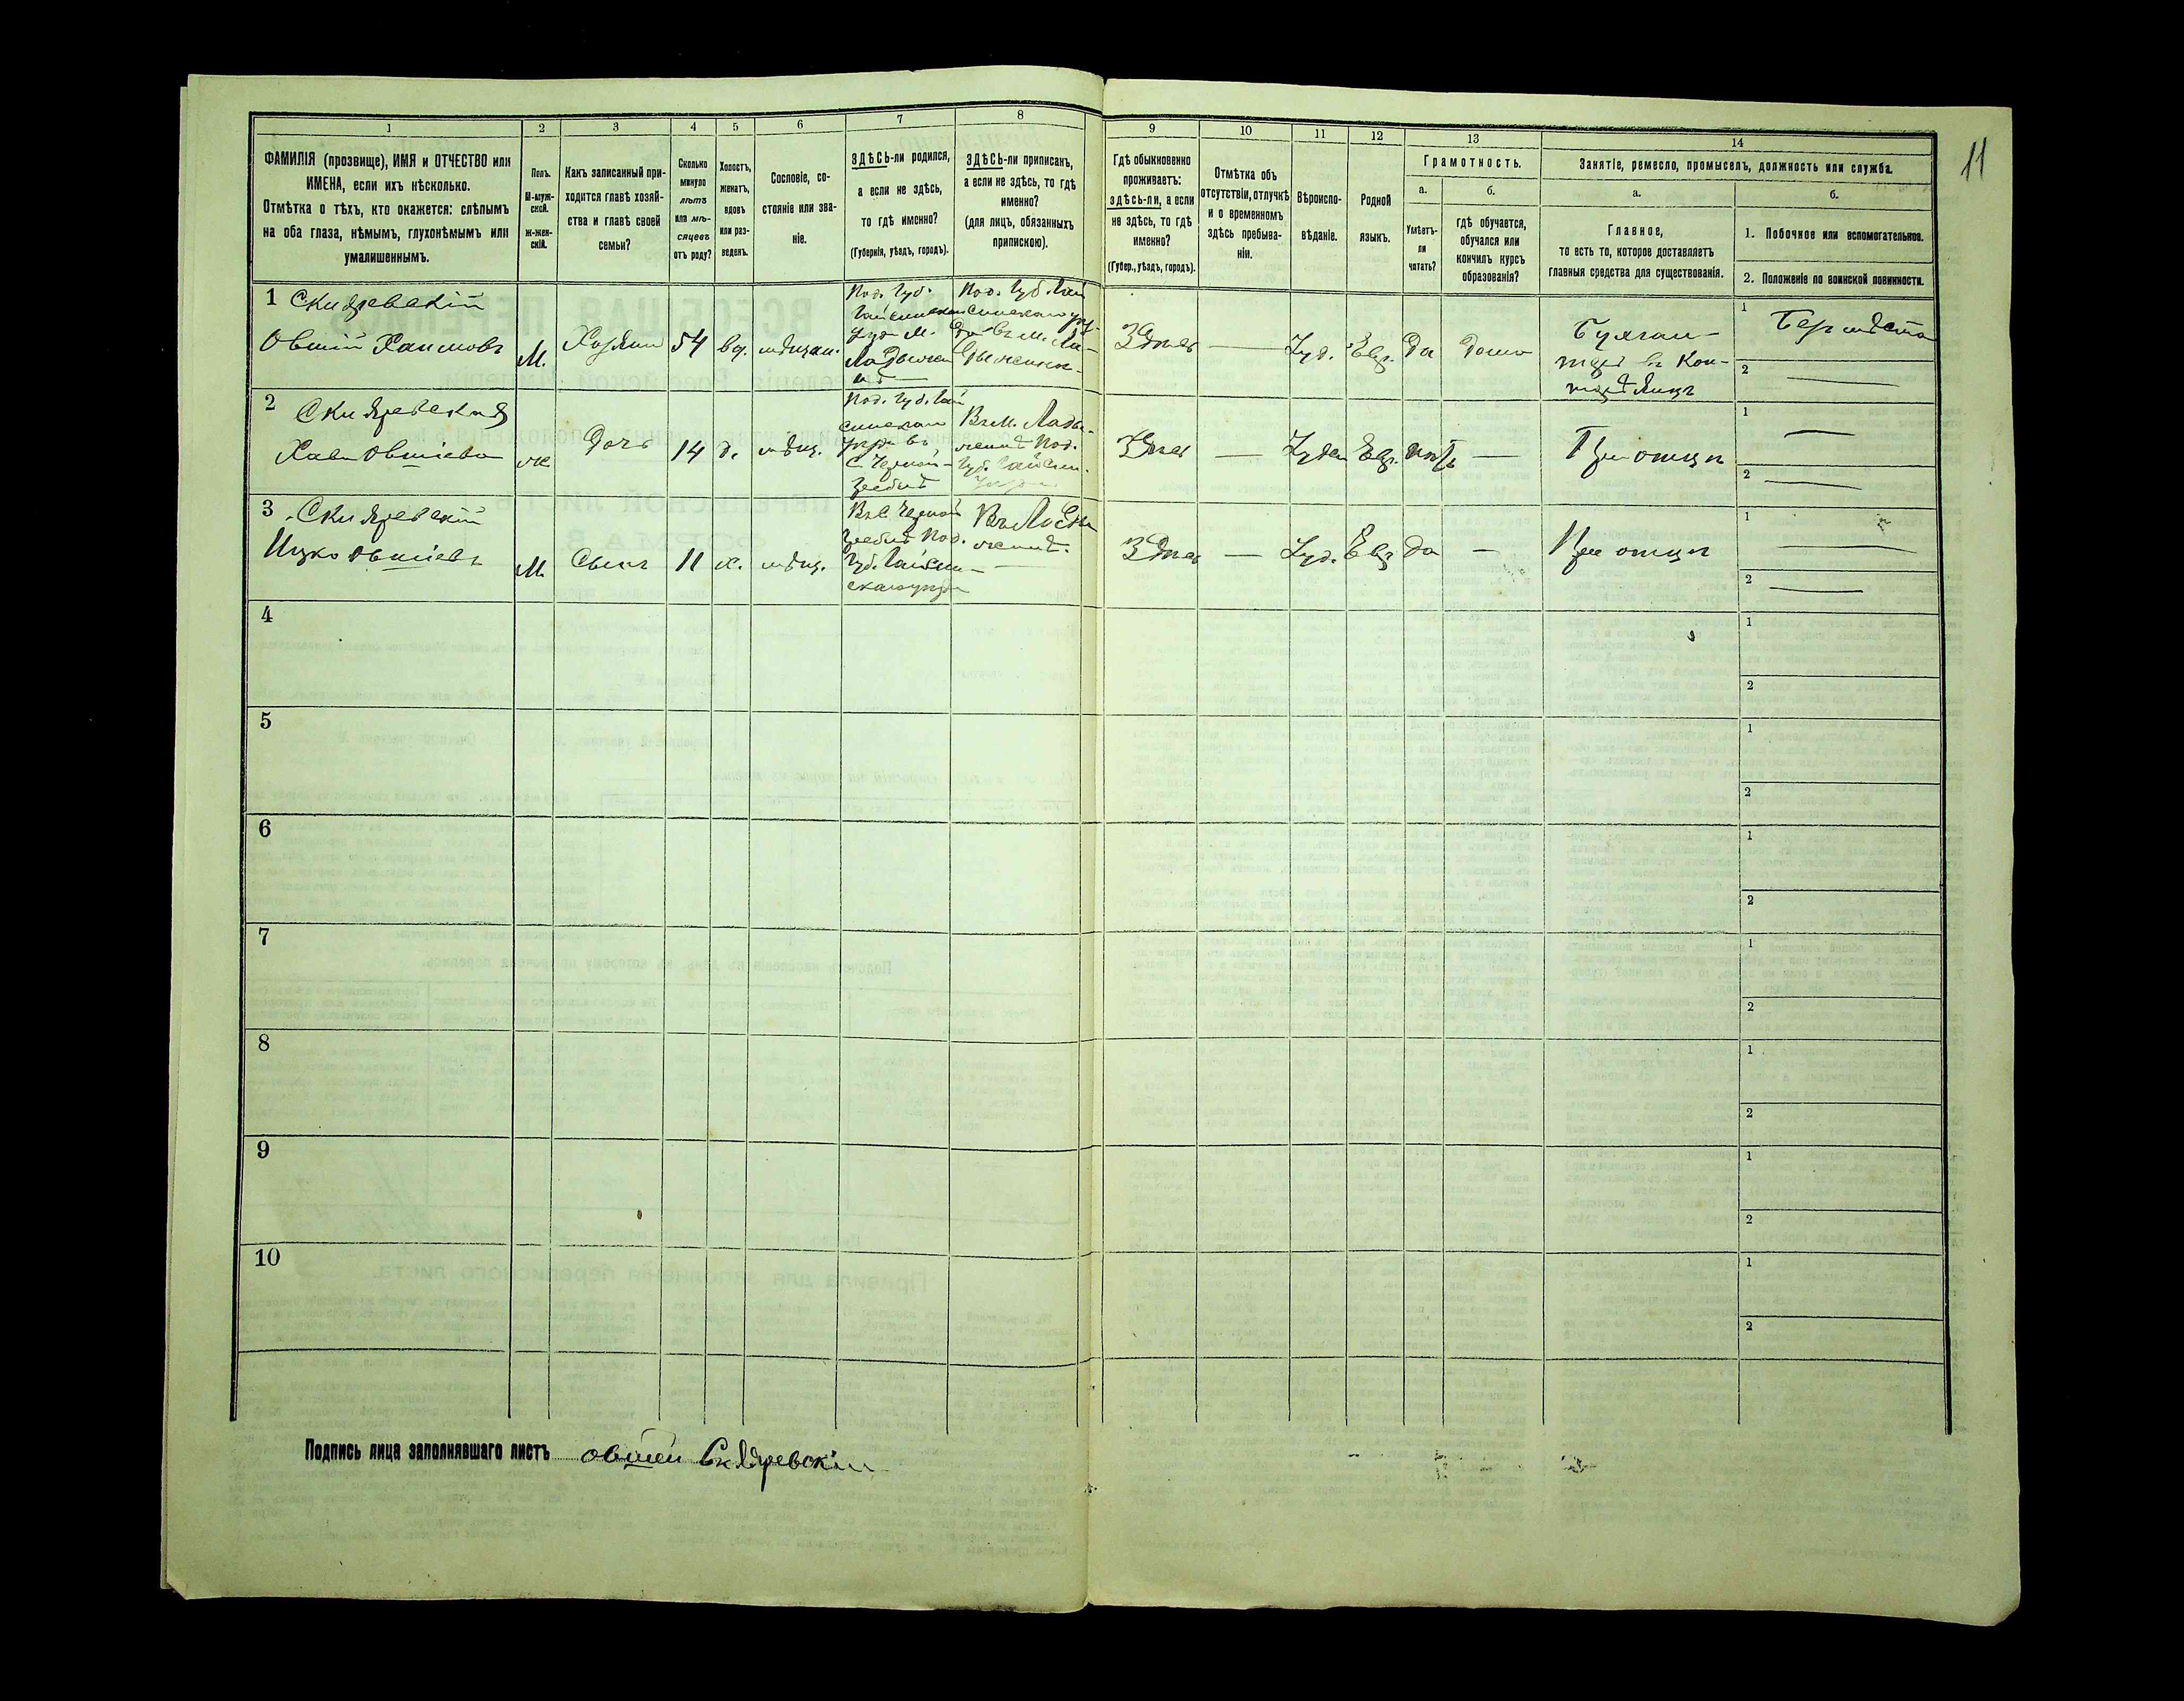 11
1 2 3 4 5 6 7 8 9 10 11 12 13 14
ФАМИЛІЯ (прозвище), ИМЯ и ОТЧЕСТВО или
ИМЕНА, если ихъ нѣсколько.
Отмѣтка о тѣхъ, кто окажется: слѣпымъ
на оба глаза, нѣмымъ, глухонѣмымъ или
умалишеннымъ.
Полъ.
М-муж-
ской.
ж-жен-
скій.
Какъ записанный при-
ходится главѣ хозяй-
ства и главѣ своей
семьи?
Сколько
минуло
лѣтъ
или мѣ-
сяцевъ
отъ роду?
Холостъ,
женатъ,
вдовъ
или раз-
веденъ.
Сословіе, со-
стояніе или зва-
ніе.
ЗДѢСЬ-ли родился,
а если не здѣсь,
то гдѣ именно?
(Губернія, уѣздъ, городъ).
ЗДѢСЬ-ли приписанъ,
а если не здѣсь, то гдѣ
именно?
(для лицъ, обязанныхъ
припискою).
Гдѣ обыкновенно
проживаетъ:
здѣсь-ли, а если
не здѣсь, то гдѣ
именно?
(Губер., уѣздъ, городъ).
Отмѣтка объ
отсутствіи, отлучкѣ
и о временномъ
здѣсь пребыва-
ніи.
Вѣроиспо-
вѣданіе.
Родной
языкъ.
Грамотность.
а. б.
Умѣетъ-
ли
читать?
гдѣ обучается,
обучался или
кончилъ курсъ
образованія?
Занятіе, ремесло, промыселъ, должность или служба.
а. б.
Главное,
то есть то, которое доставляетъ
главныя средства для существованія.
1. Побочное или вспомогательное.
2. Положеніе по воинской повинности.
1 Скляревскій
Овшій Хаимовъ
М.
Хозяин
54
вд.
мѣщан.
Под. Губ.
уезд М.
Под. Губ. Гай
Здѣсь
—
Іуд.
Евр.
Да
Дома
Бухгал-
1
2
2 Скляревская
Хава Овшіева
ж
Дочь
14
д.
мѣщ.
Под. Губ. Гай
синскаго
Въ М. Лады-
женкѣ Под.
Губ. Гайсин.
Здѣсь
—
Іудей
Евр.
нѣтъ
—
При отцѣ
1 —
2 —
3 Скляревскій
Ицко Овшіевъ
М.
Сынъ
11
х.
мѣщ.
Въ С. Черной
Гребнѣ Под.
Губ. Гайсин-
скаго уезда
Въ Лады-
женкѣ.
Здѣсь
—
Іуд.
Евр
Да
—
При отцѣ
1 —
2 —
4
1
2
5
1
2
6
1
2
7
1
2
8
1
2
9
1
2
10
1
2
Подпись лица заполнявшаго листъ овшей Скляревскій